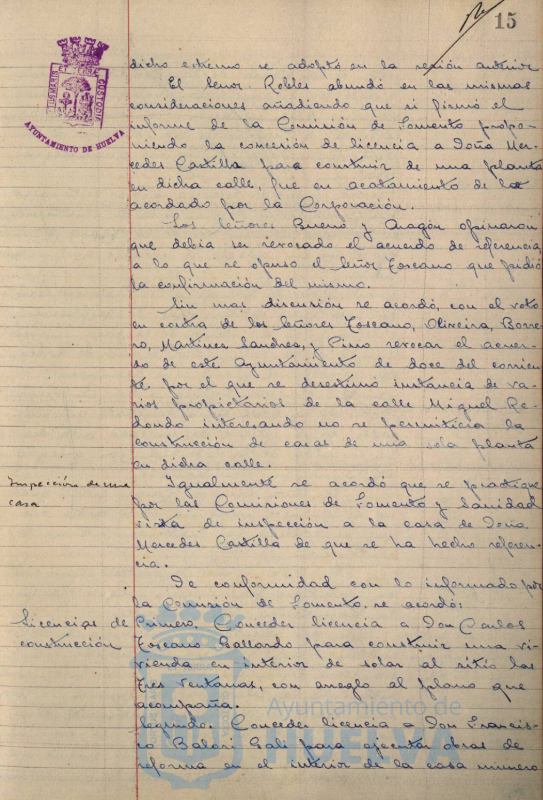 15
dicho extremo se adoptó en la sesión anterior
El Señor Robles abundó en las mismas
consideraciones añadiendo que si firmó el
informe de la Comisión de Fomento propo-
niendo la concesión de licencia a Doña Mer-
cedes Castilla para construir de una planta
en dicha calle, fue en acatamiento de lo
acordado por la Corporación.
Los Señores Bueno y Aragón opinaron
que debía ser revocado el acuerdo de referencia
a lo que se opuso el Señor Toscano que pidió
la confirmación del mismo.
Sin mas discusión se acordó, con el voto
en contra de los Señores Toscano, Oliveira, Borre-
ro, Martinez Sandrea, y Pino revocar el acuer-
do de este Ayuntamiento de doce del corrien-
te por el que se desestimó instancia de va-
rios propietarios de la calle Miguel Re-
dondo interesando no se permitiera la
construcción de casas de una sola planta
en dicha calle.
Inspección de una
casa
Igualmente se acordó que se practique
por las Comisiones de Fomento y Sanidad
visita de inspección a la casa de Doña
Mercedes Castilla de que se ha hecho referen-
cia.
De conformidad con lo informado por
la Comisión de Fomento, se acordó:
Licencias de
construcción
Primero. Conceder licencia a Don Carlos
Toscano Gallardo para construir una vi-
vienda en interior de solar al sitio las
Tres Ventanas, con arreglo al plano que
acompaña.
Segundo: Conceder licencia a Don Francis-
co para ejecutar obras de
reforma en el interior de la casa numero
AYUNTAMIENTO DE HUELVA
Ayuntamiento de
HUELVA